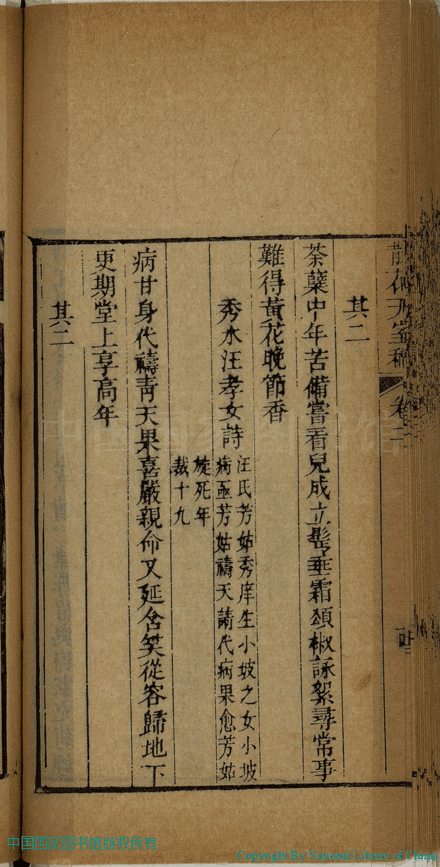 散花天室稿 卷二
其二
荼蘗中年苦備嘗看兒成立鬂垂霜頌椒詠絮尋常事
難得黃花晚節香
秀水汪孝女詩
汪氏芳姑秀庠生小坡之女小坡
病亟芳姑禱天請代病果愈芳姑
旋死年
裁十九
病甘身代禱青天果喜嚴親命又延含笑從容歸地下
更期堂上享高年
其二
中国国家图书馆
中国国家图书馆版权所有
Copyright By National Library of China